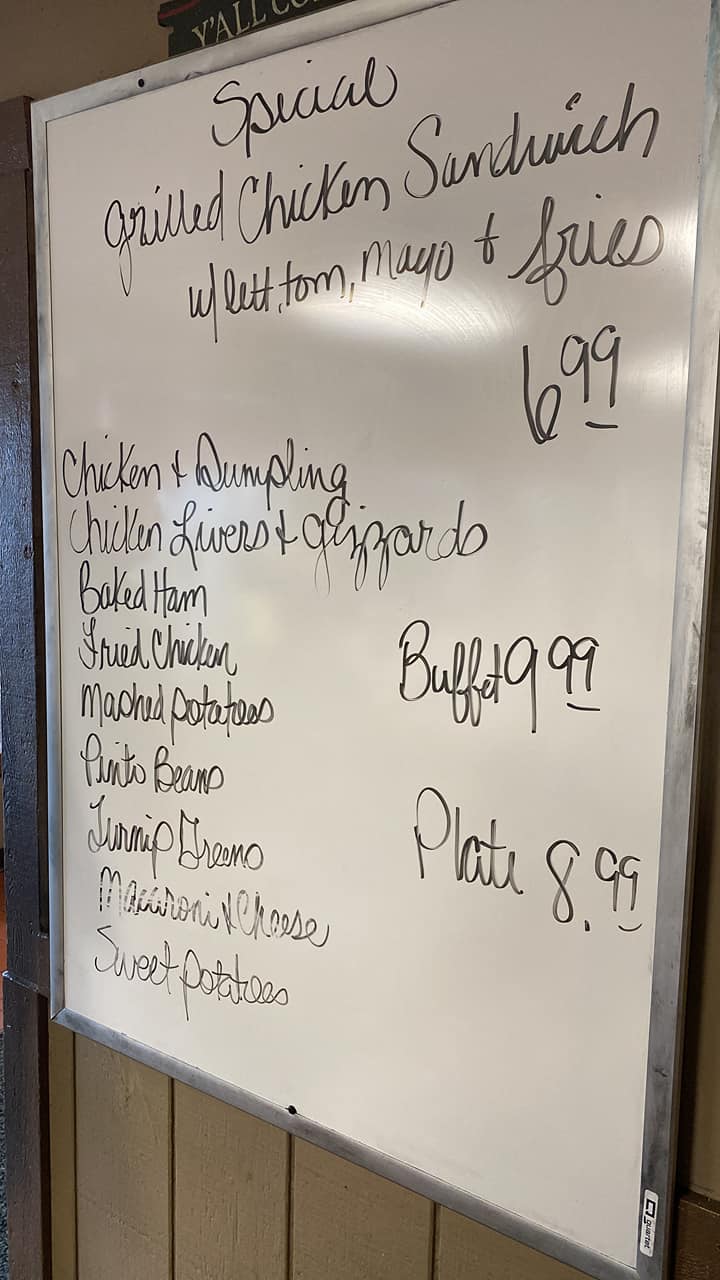 Y'ALL CO
Special
Grilled Chicken Sandwich
w/ lett, tom, Mayo + fries
6 99
Chicken + Dumpling
Chicken Livers + gizzards
Baked Ham
Fried Chicken
Buffet 9 99
Mashed potatoes
Pinto Beans
Turnip Greens
Plate 8.99
Macaroni + Cheese
Sweet potatoes
quartet